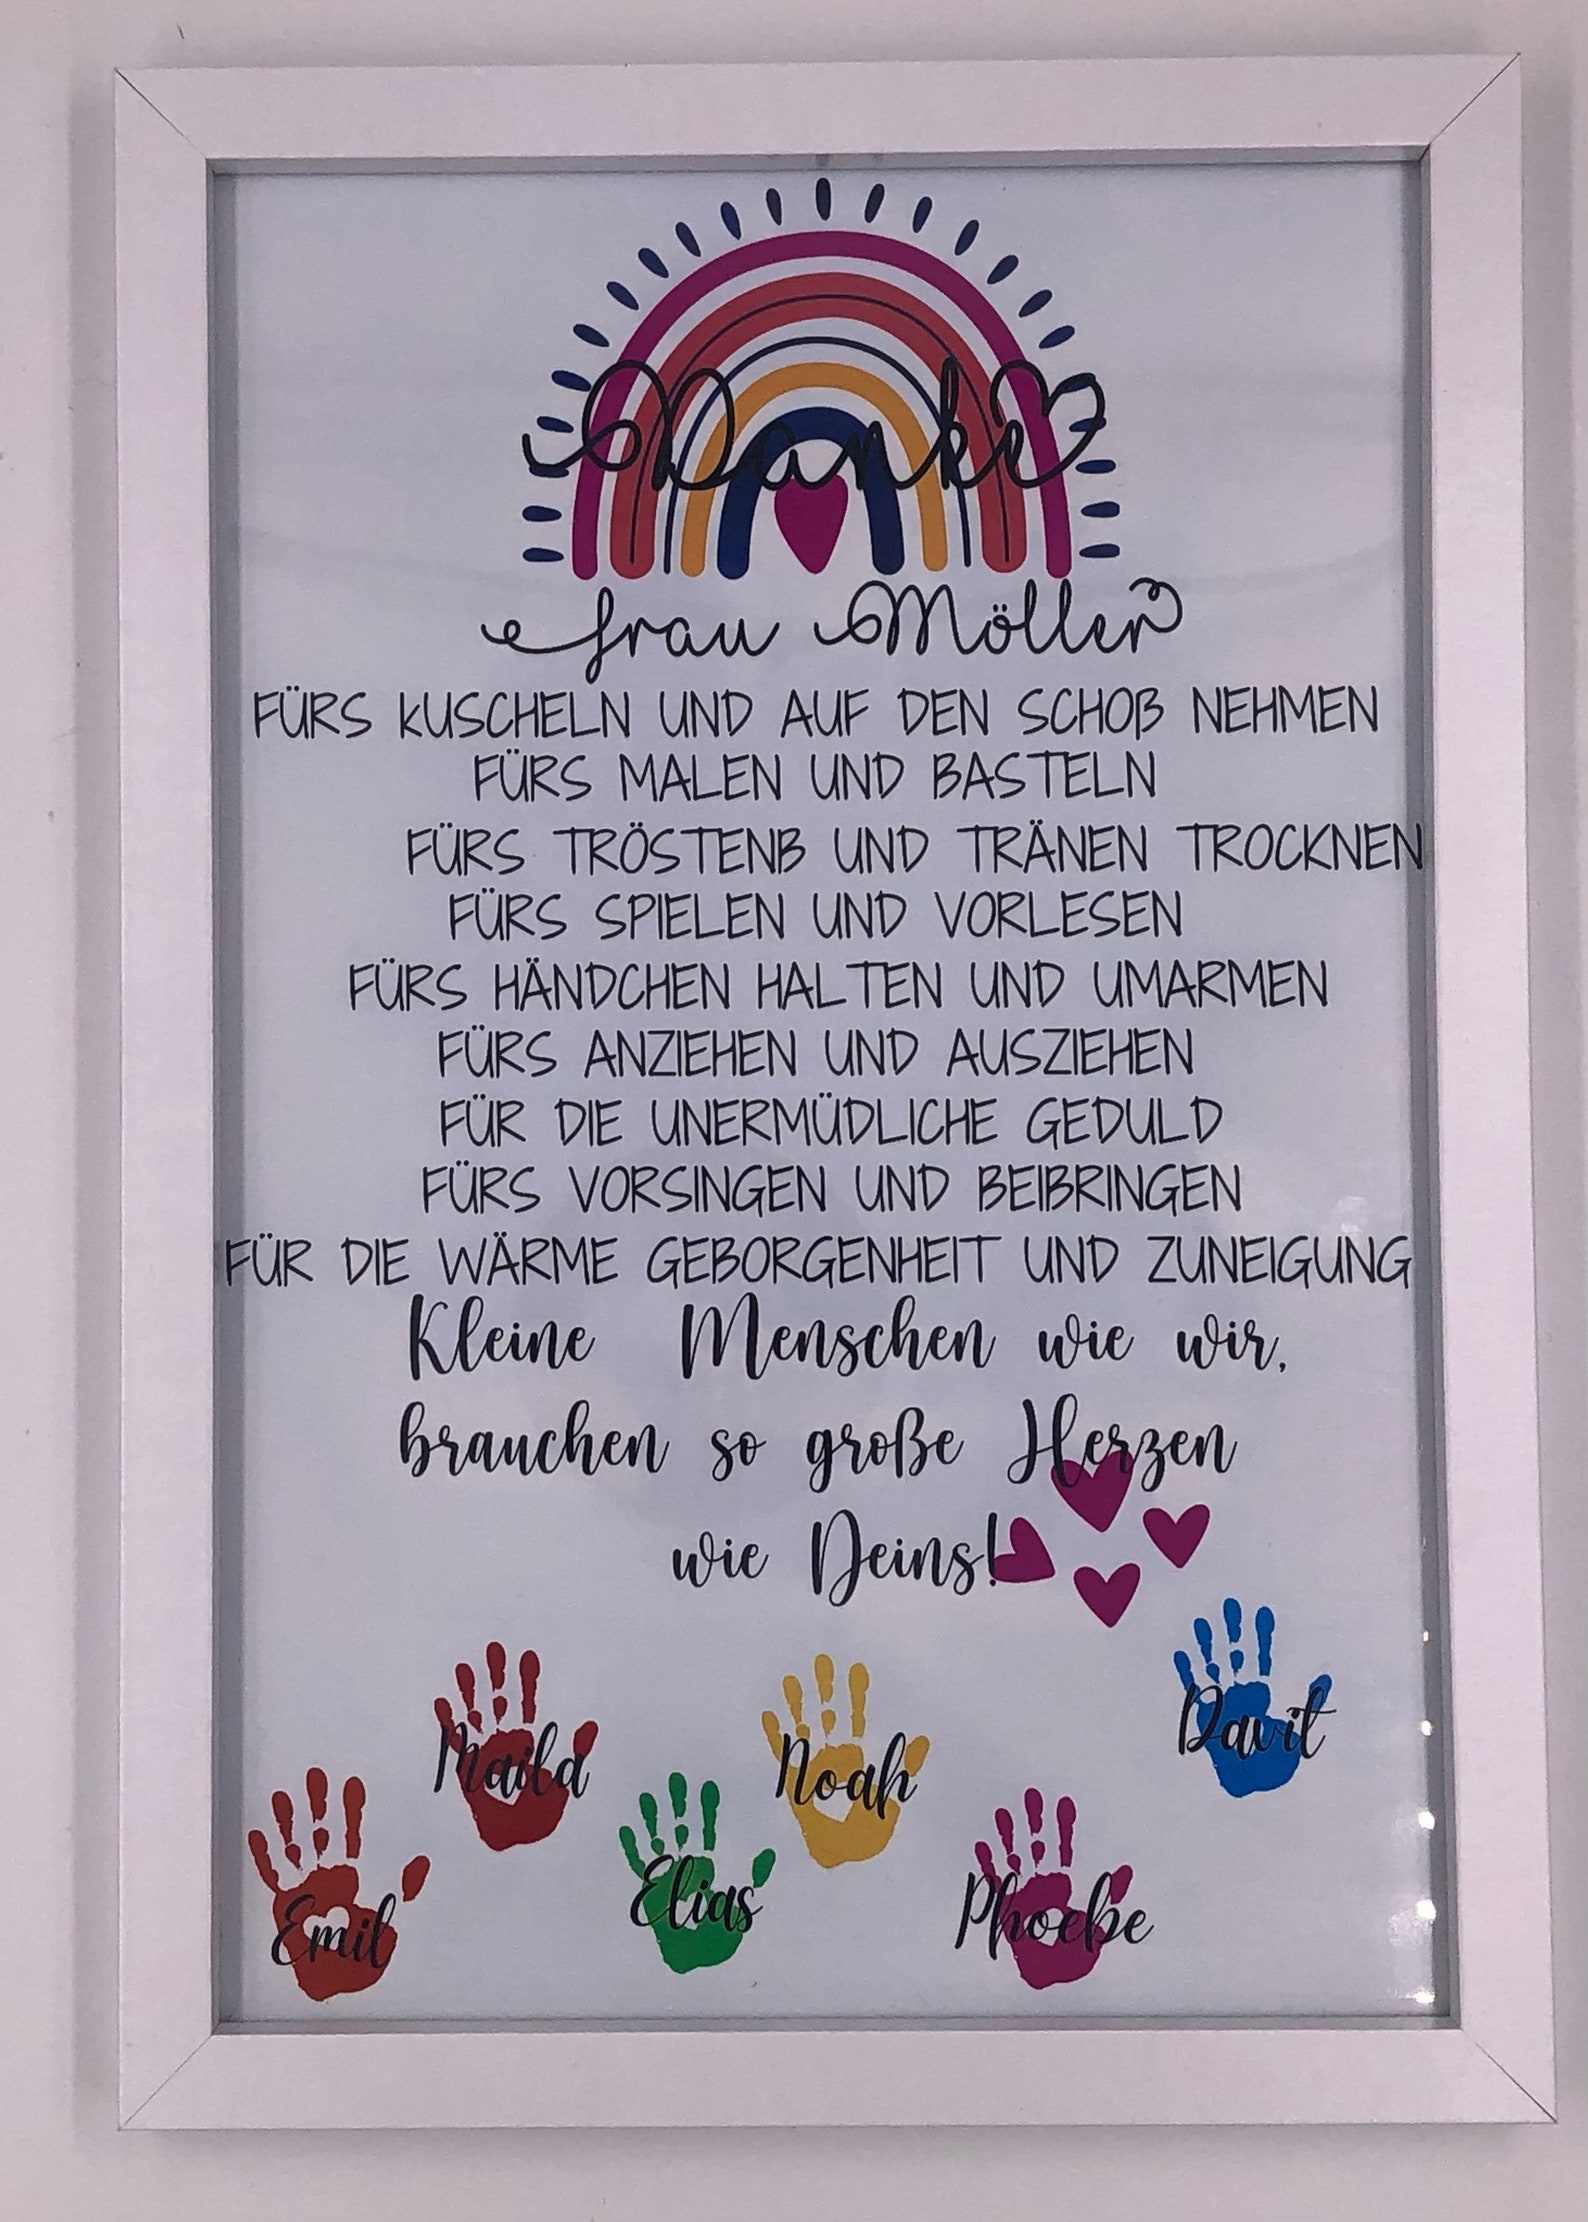 Danke
frau Möller
FÜRS KUSCHELN UND AUF DEN SCHOß NEHMEN
FÜRS MALEN UND BASTELN
FÜRS TRÖSTENB UND TRÄNEN TROCKNEN
FÜRS SPIELEN UND VORLESEN
FÜRS HÄNDCHEN HALTEN UND UMARMEN
FÜRS ANZIEHEN UND AUSZIEHEN
FÜR DIE UNERMÜDLICHE GEDULD
FÜRS VORSINGEN UND BEIBRINGEN
FÜR DIE WÄRME GEBORGENHEIT UND ZUNEIGUNG
Kleine Menschen wie wir,
brauchen so große Herzen
wie Deins!
Davit
Maila
Noah
Elias
Phoebe
Emil